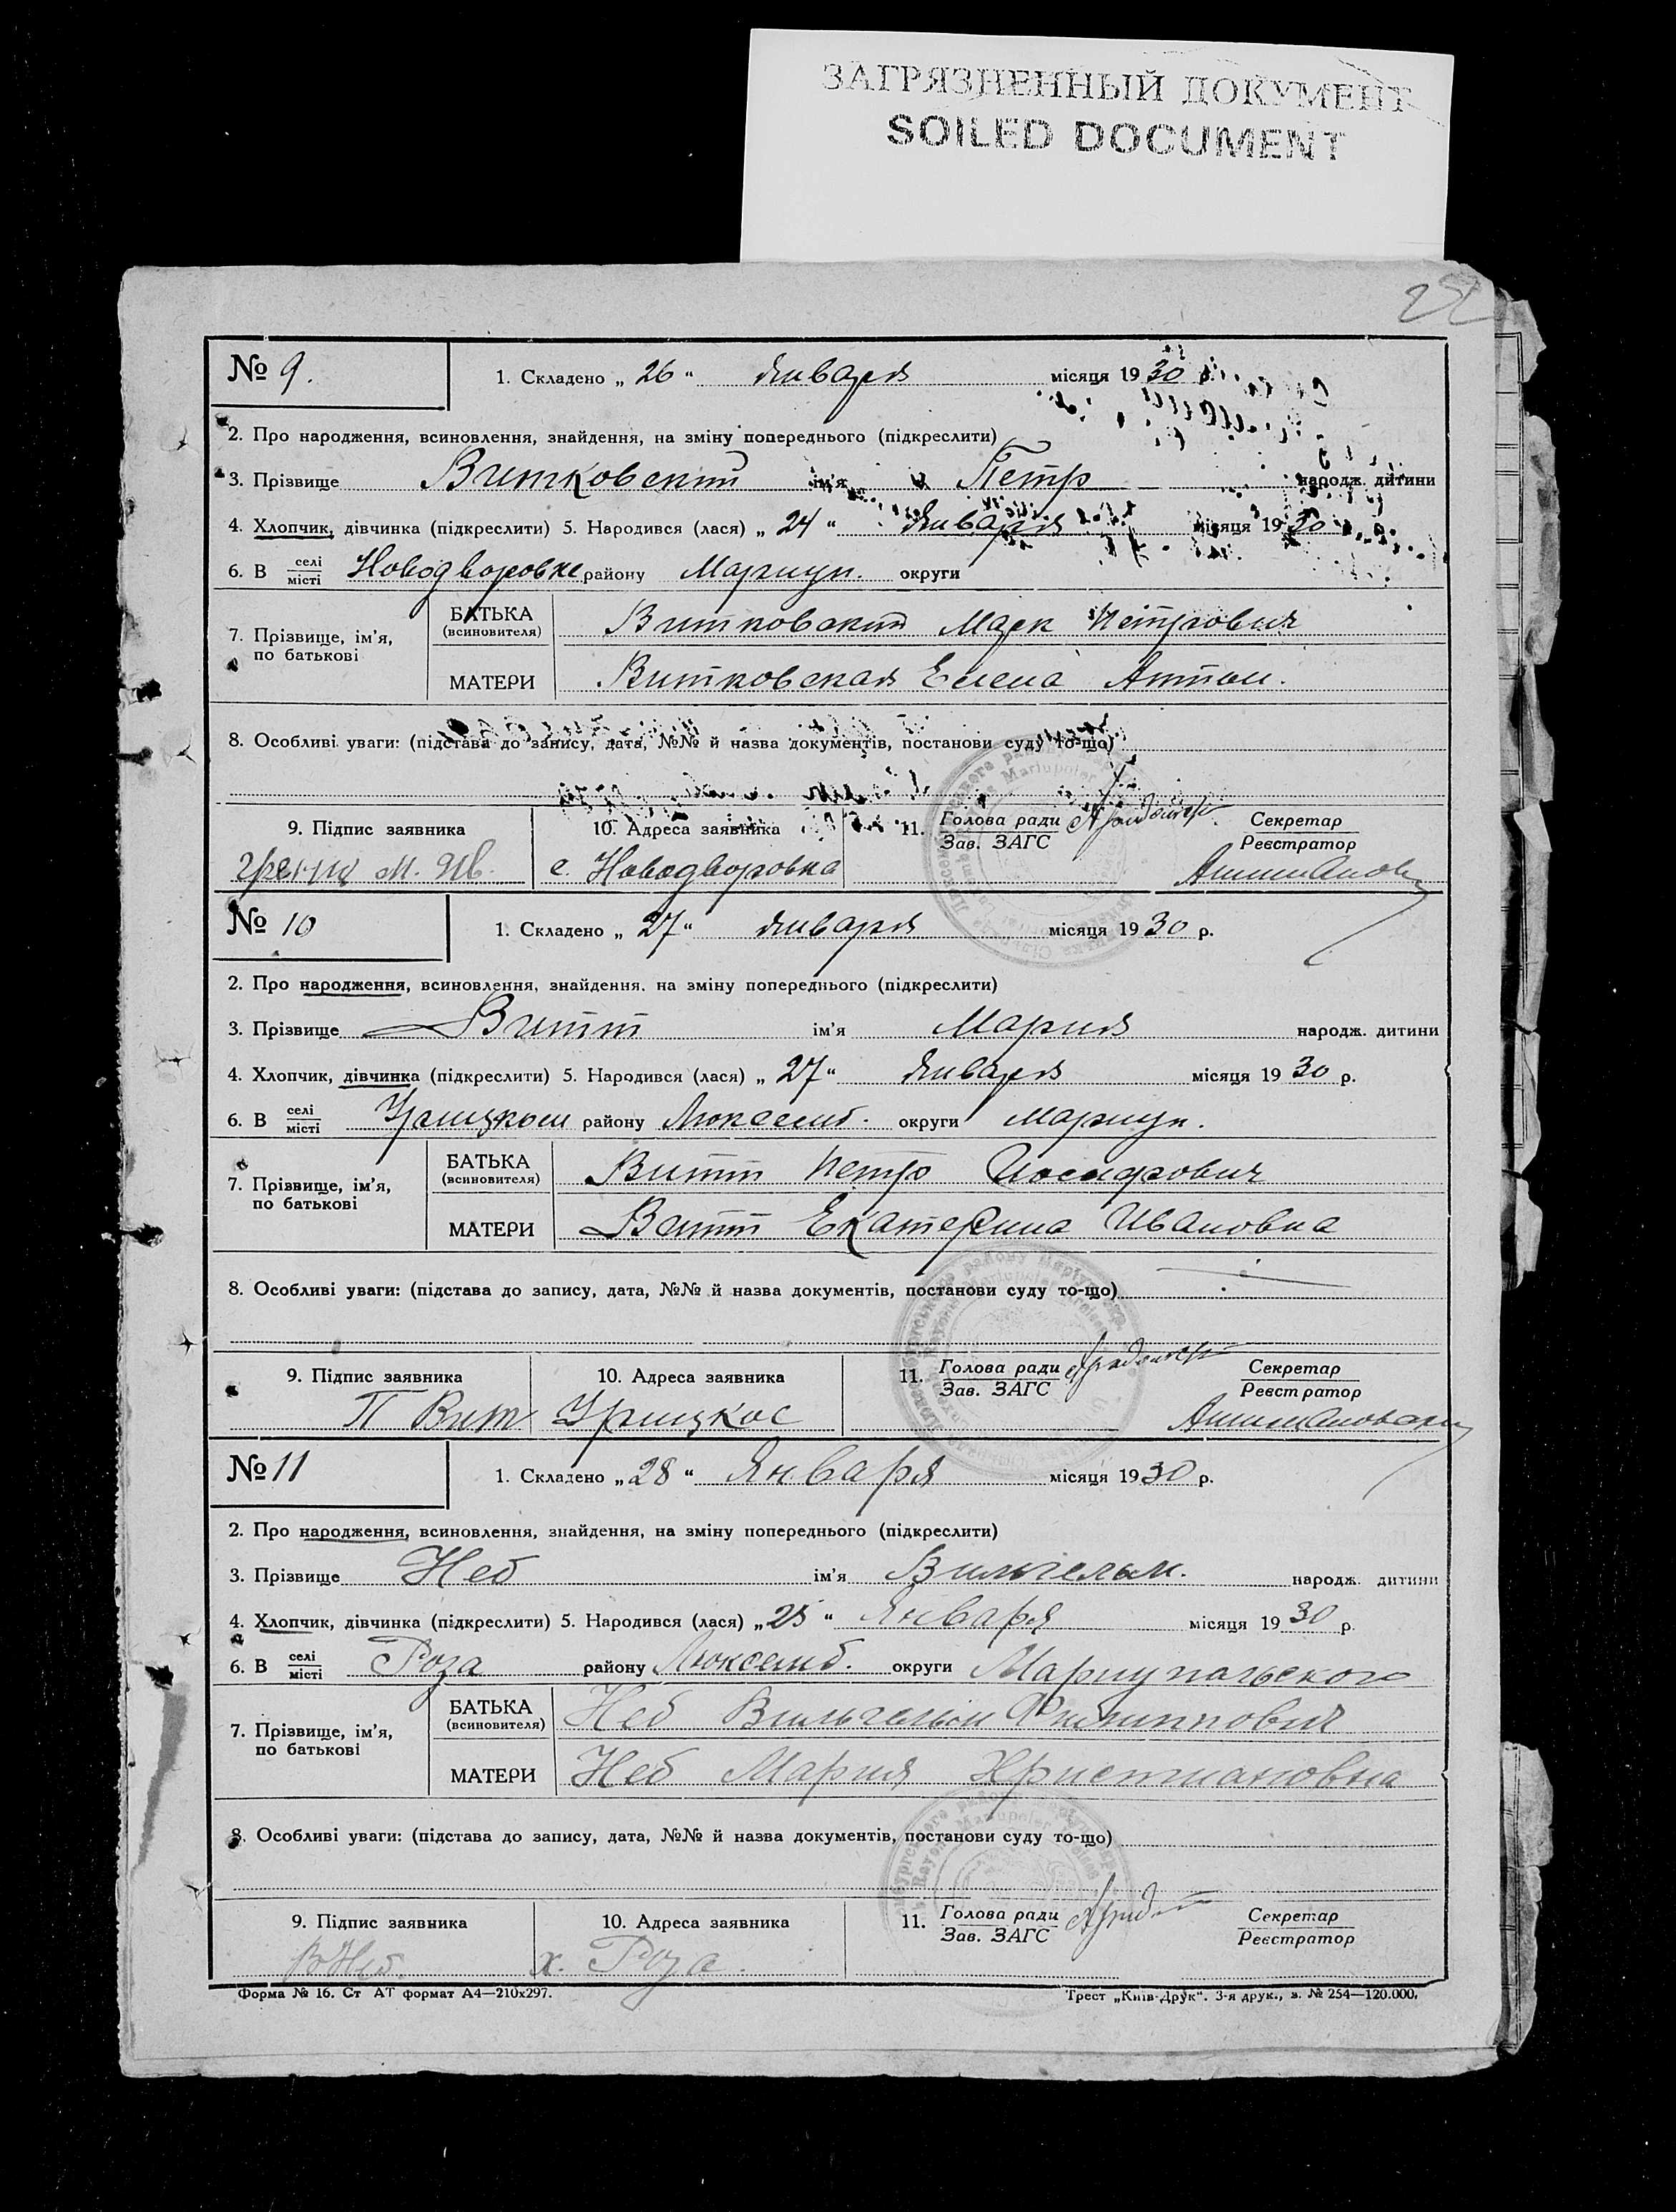 ЗАГРЯЗНЕННЫЙ ДОКУМЕНТ
SOILED DOCUMENT
№ 9. 1. Складено „ 26 “ января місяця 1930
2. Про народження, всиновлення, знайдення, на зміну попереднього (підкреслити)
3. Прізвище Витковский ім'я Петр народж. дитини
4. Хлопчик, дівчинка (підкреслити) 5. Народився (лася) „ 24 “ января місяця 1930
6. В селі/місті Новодворовке району Мариуп. округи
7. Прізвище, ім'я, по батькові
БАТЬКА (всиновителя) Витковский Марк Петрович
МАТЕРИ Витковская Елена Антон.
8. Особливі уваги: (підстава до запису, дата, №№ й назва документів, постанови суду то-що)
9. Підпис заявника 10. Адреса заявника 11. Голова ради / Зав. ЗАГС Секретар / Реєстратор
с. Новодворовка
№ 10 1. Складено „ 27 “ января місяця 1930 р.
2. Про народження, всиновлення, знайдення, на зміну попереднього (підкреслити)
3. Прізвище Витт ім'я Мария народж. дитини
4. Хлопчик, дівчинка (підкреслити) 5. Народився (лася) „ 27 “ января місяця 1930 р.
6. В селі/місті Урицком району Люксемб. округи Мариуп.
7. Прізвище, ім'я, по батькові
БАТЬКА (всиновителя) Витт Петр Иосифович
МАТЕРИ Витт Екатерина Ивановна
8. Особливі уваги: (підстава до запису, дата, №№ й назва документів, постанови суду то-що)
9. Підпис заявника 10. Адреса заявника 11. Голова ради / Зав. ЗАГС Секретар / Реєстратор
П Витт Урицкое
№ 11 1. Складено „ 28 “ Января місяця 1930 р.
2. Про народження, всиновлення, знайдення, на зміну попереднього (підкреслити)
3. Прізвище Неб ім'я Вильгельм. народж. дитини
4. Хлопчик, дівчинка (підкреслити) 5. Народився (лася) „ 25 “ Января місяця 1930 р.
6. В селі/місті Роза району Люксемб. округи Мариупольского
7. Прізвище, ім'я, по батькові
БАТЬКА (всиновителя) Неб Вильгельм Филиппович
МАТЕРИ Неб Мария Христиановна
8. Особливі уваги: (підстава до запису, дата, №№ й назва документів, постанови суду то-що)
9. Підпис заявника 10. Адреса заявника 11. Голова ради / Зав. ЗАГС Секретар / Реєстратор
В Неб. х. Роза.
Форма № 16. Ст АТ формат А4—210х297. Трест „Київ-Друк“. 3-я друк., з. № 254—120.000.